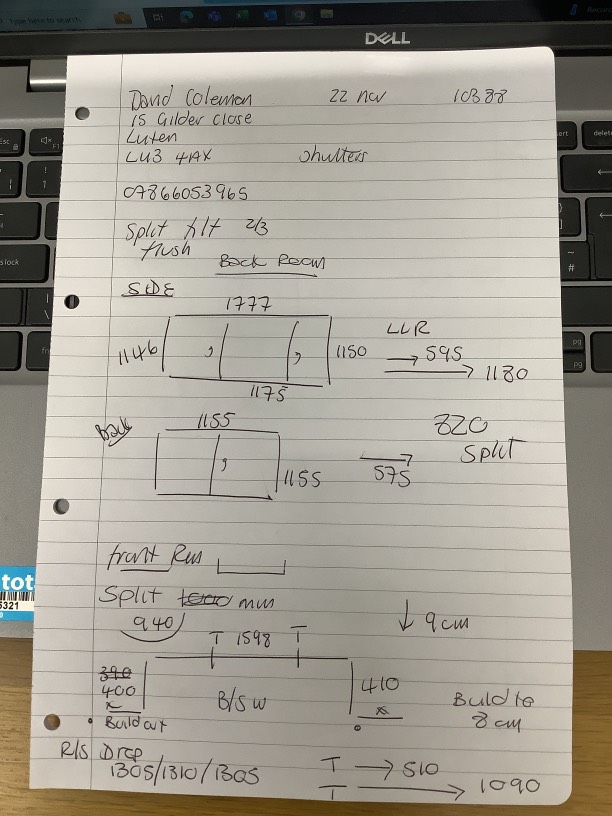 Type here to search
DELL
David Coleman 22 nov 10388
15 Gilder Close
Luten
LU3 4AX Shutters
07866053965
Split tilt 2/3
flush
Back Room
SIDE
1777
1146 1150 LLR
→ 595
→ 1180
1175
Back 1155 820
Split
1155 → 575
front Rm
Split mm
940 ↓ 9cm
T 1598 T
390
400 B/S W 410
x x
Build out Build to
8cm
R/S Drop
1305/1310/1305 T → 510
T → 1090
tot
5321